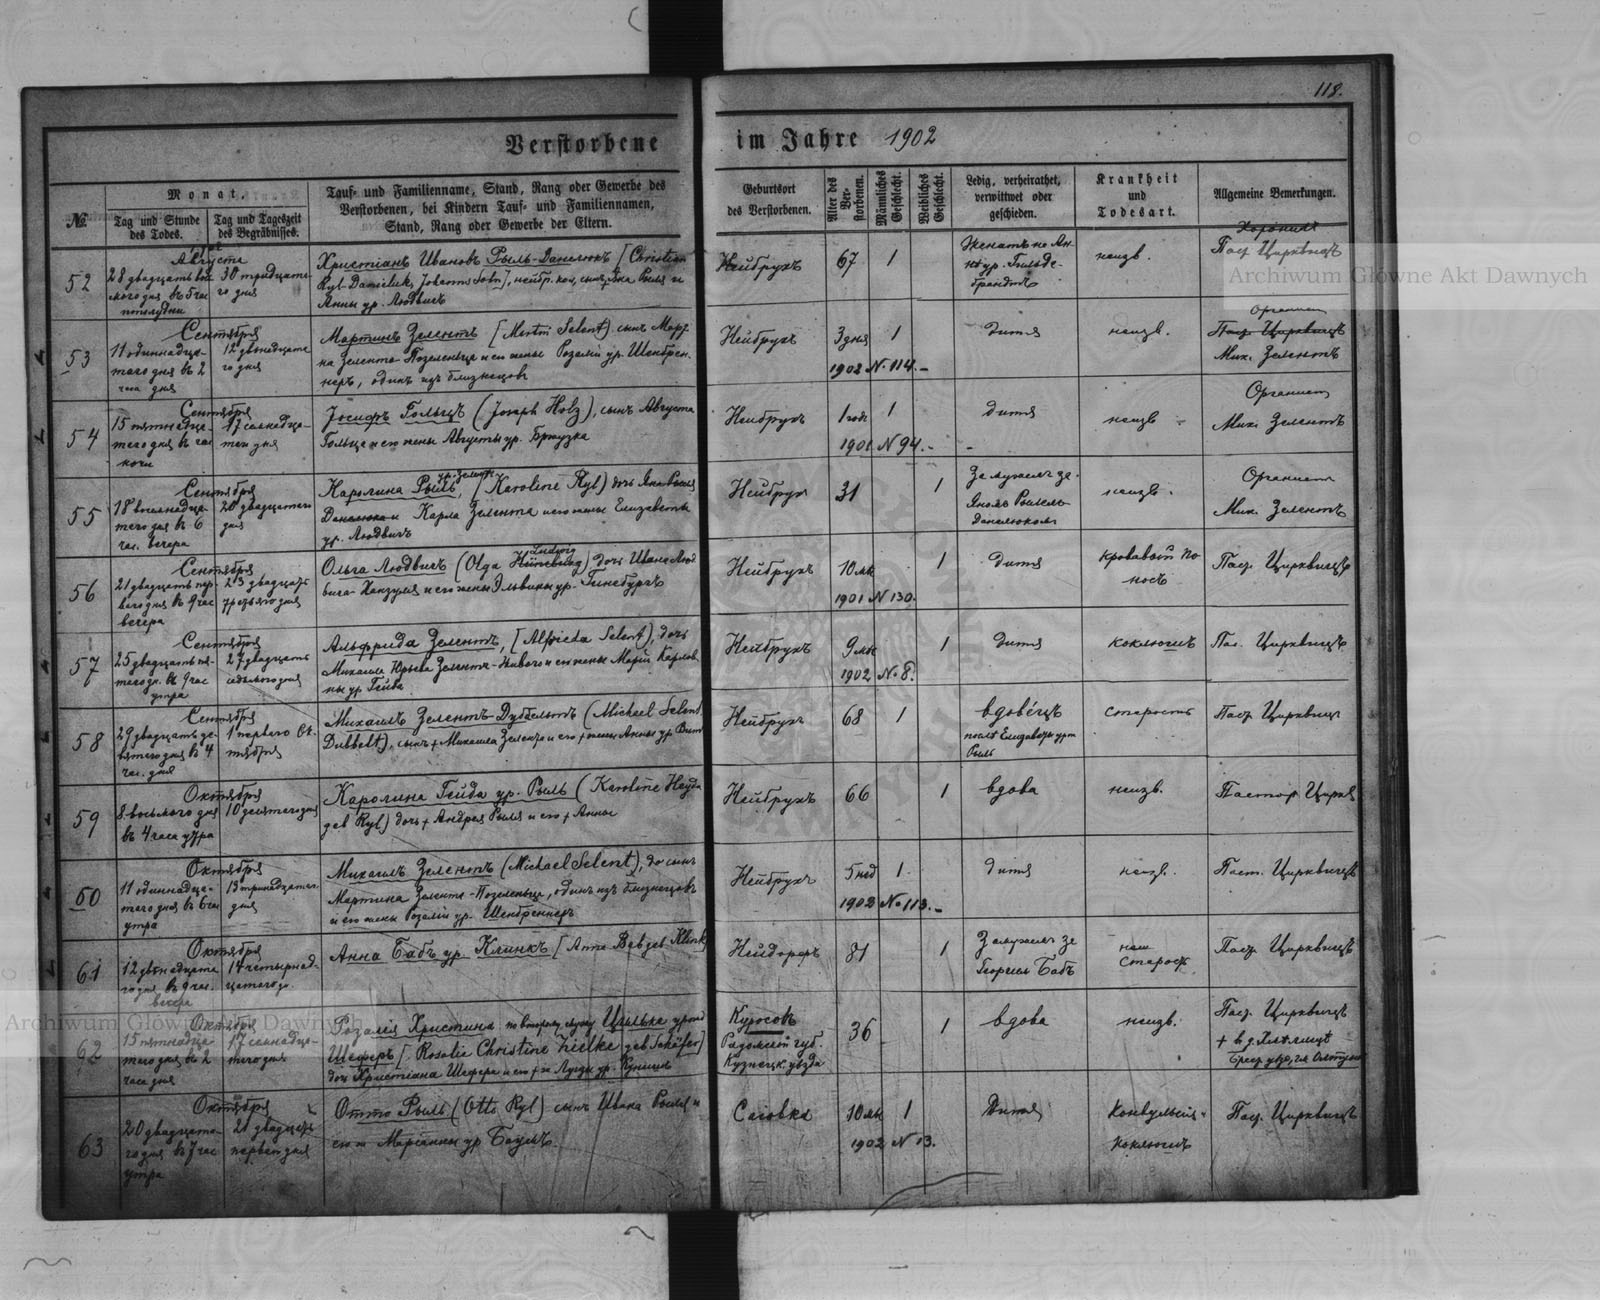 118.
Verstorbene im Jahre 1902
№
Monat.
Tag und Stunde des Todes.
Tag und Tageszeit des Begräbnisses.
Tauf- und Familienname, Stand, Rang oder Gewerbe des
Verstorbenen, bei Kindern Tauf- und Familiennamen,
Stand, Rang oder Gewerbe der Eltern.
Geburtsort
des Verstorbenen.
Alter des Verstorbenen.
Männliches Geschlecht.
Weibliches Geschlecht.
Ledig, verheirathet,
verwittwet oder
geschieden.
Krankheit
und
Todesart.
Allgemeine Bemerkungen.
52
Августа
30 тридцата-
го дня
Христіанъ Ивановъ Рыль-Данелюкъ [Christian
Ryl-Danieluk, Johanns Sohn],
Анны ур. Людвигъ
Нейбрухъ
67
1
неизв.
Паст. Цирквицъ
53
Сентября
11 одиннадца-
таго дня въ 2
часа дня
12 двѣнадцата
го дня
Мартинъ Зелентъ [Martin Selent) сынъ Март.
на Зелента-Позеленьца и его жены Розаліи ур. Шенбрен-
неръ, одинъ изъ близнецовъ
Нейбрухъ
3 дня
1
1902 № 114.-
дитя
неизв.
Органист
Паст. Цирквицъ
Мих. Зелентъ
54
Сентября
15 пятнадца-
таго дня въ час
ночи
17 семнадца-
таго дня
Іосифъ Гольцъ (Joseph Holz), сынъ Августа
Гольца и его жены Августы ур. Бриузка
Нейбрухъ
1 годъ
1
1901 № 94.-
дитя
неизв
Органист
Мих. Зелентъ
55
Сентября
18 восемнадца-
таго дня въ 6
час. вечера
20 двадцатаго
дня
Каролина Рыль, ур. Зелентъ [Karoline Ryl) дочь
Карла Зелента и его жены Елизаветы
ур. Людвигъ
Нейбрух
31
1
За мужемъ за
Яномъ Рылемъ-
Данелюкомъ
неизв.
Органист
Мих. Зелентъ
56
Сентября
21 двадцать пер-
ваго дня въ 9 час
вечера
23 двадцать
третьяго дня
Ольга Людвигъ (Olga Hüneburg Ludwig) дочь Ивана Люд-
вига-Ханзуля и его жены Эльвины ур. Гинебургъ
Нейбрухъ
10 мѣс
1
1901 № 130.
дитя
кровавый по-
носъ
Паст. Цирквицъ
57
Сентября
25 двадцать пя-
таго дн. въ 9 час
утра
27 двадцать
седьмого дня
Альфрида Зелентъ, [Alfrieda Selent), дочь
Михаила Юрьева Зелента- и его жены Маріи Карлов-
ны ур. Гейда
Нейбрухъ
9 мѣс
1
1902 № 8.
дитя
коклюшъ
Пас. Цирквицъ
58
Сентября
29 двадцать де-
вятаго дня въ 4
час. дня
1 перваго Ок-
тября
Михаилъ Зелентъ-Дуббельтъ (Michael Selent
Dubbelt), сынъ + Михаила Зелента и его + жены Анны ур.
Нейбрухъ
68
1
вдовецъ
послѣ Елизаветы ур.
Рыль
старость
Паст. Цирквиц
59
Октября
8 восьмого дня
въ 4 часа утра
10 десятаго дня
Каролина Гейда ур. Рыль (Karoline Heyda
geb Ryl) дочь + Андрея Рыля и его + Анны
Нейбрухъ
66
1
вдова
неизв.
Пастор Циркв
60
Октября
11 одиннадца-
таго дня въ 6 час
утра
13 тринадцатаг.
дня
Михаилъ Зелентъ (Michael Selent), сынъ
Мартина Зелента-Позеленьца, одинъ изъ близнецовъ
и его жены Розаліи ур. Шенбреннеръ
Нейбрухъ
5 нед
1.
1902 № 113.-
дитя
неизв.
Паст. Цирквицъ
61
Октября
12 двѣнадцата
го дня въ 9 час.
вечера
14 четырнад-
цатаго д.
Анна Бабъ ур. Клинкъ [Anna Bab geb Klink
Нейдорфъ
81
1
Замужемъ за
Георгіемъ Бабъ
старость
Паст. Цирквицъ
62
Октября
15 пятнадца-
таго дня въ 2
часа дня
17 семнадца-
таго дня
Розалія Христина по второму мужу Цильке урожд
Шеферъ [Rosalie Christine Zielke geb Schäfer]
дочь Христіана Шефера и его
Куросок
Радомской губ.
уѣзда
36
1
вдова
неизв.
Паст. Цирквицъ
63
Октября
20 двадцата-
го дня въ 7 час
утра
21 двадцать
первого дня
Отто Рыль (Otto Ryl) сынъ Ивана Рыля и
его ж Маріанны ур Баумъ.
Саіовка
10 мѣс
1
1902 № 13.
Дитя
Конвульсіи-
коклюшъ
Паст. Цирквицъ
Archiwum Główne Akt Dawnych
Archiwum Główne Akt Dawnych